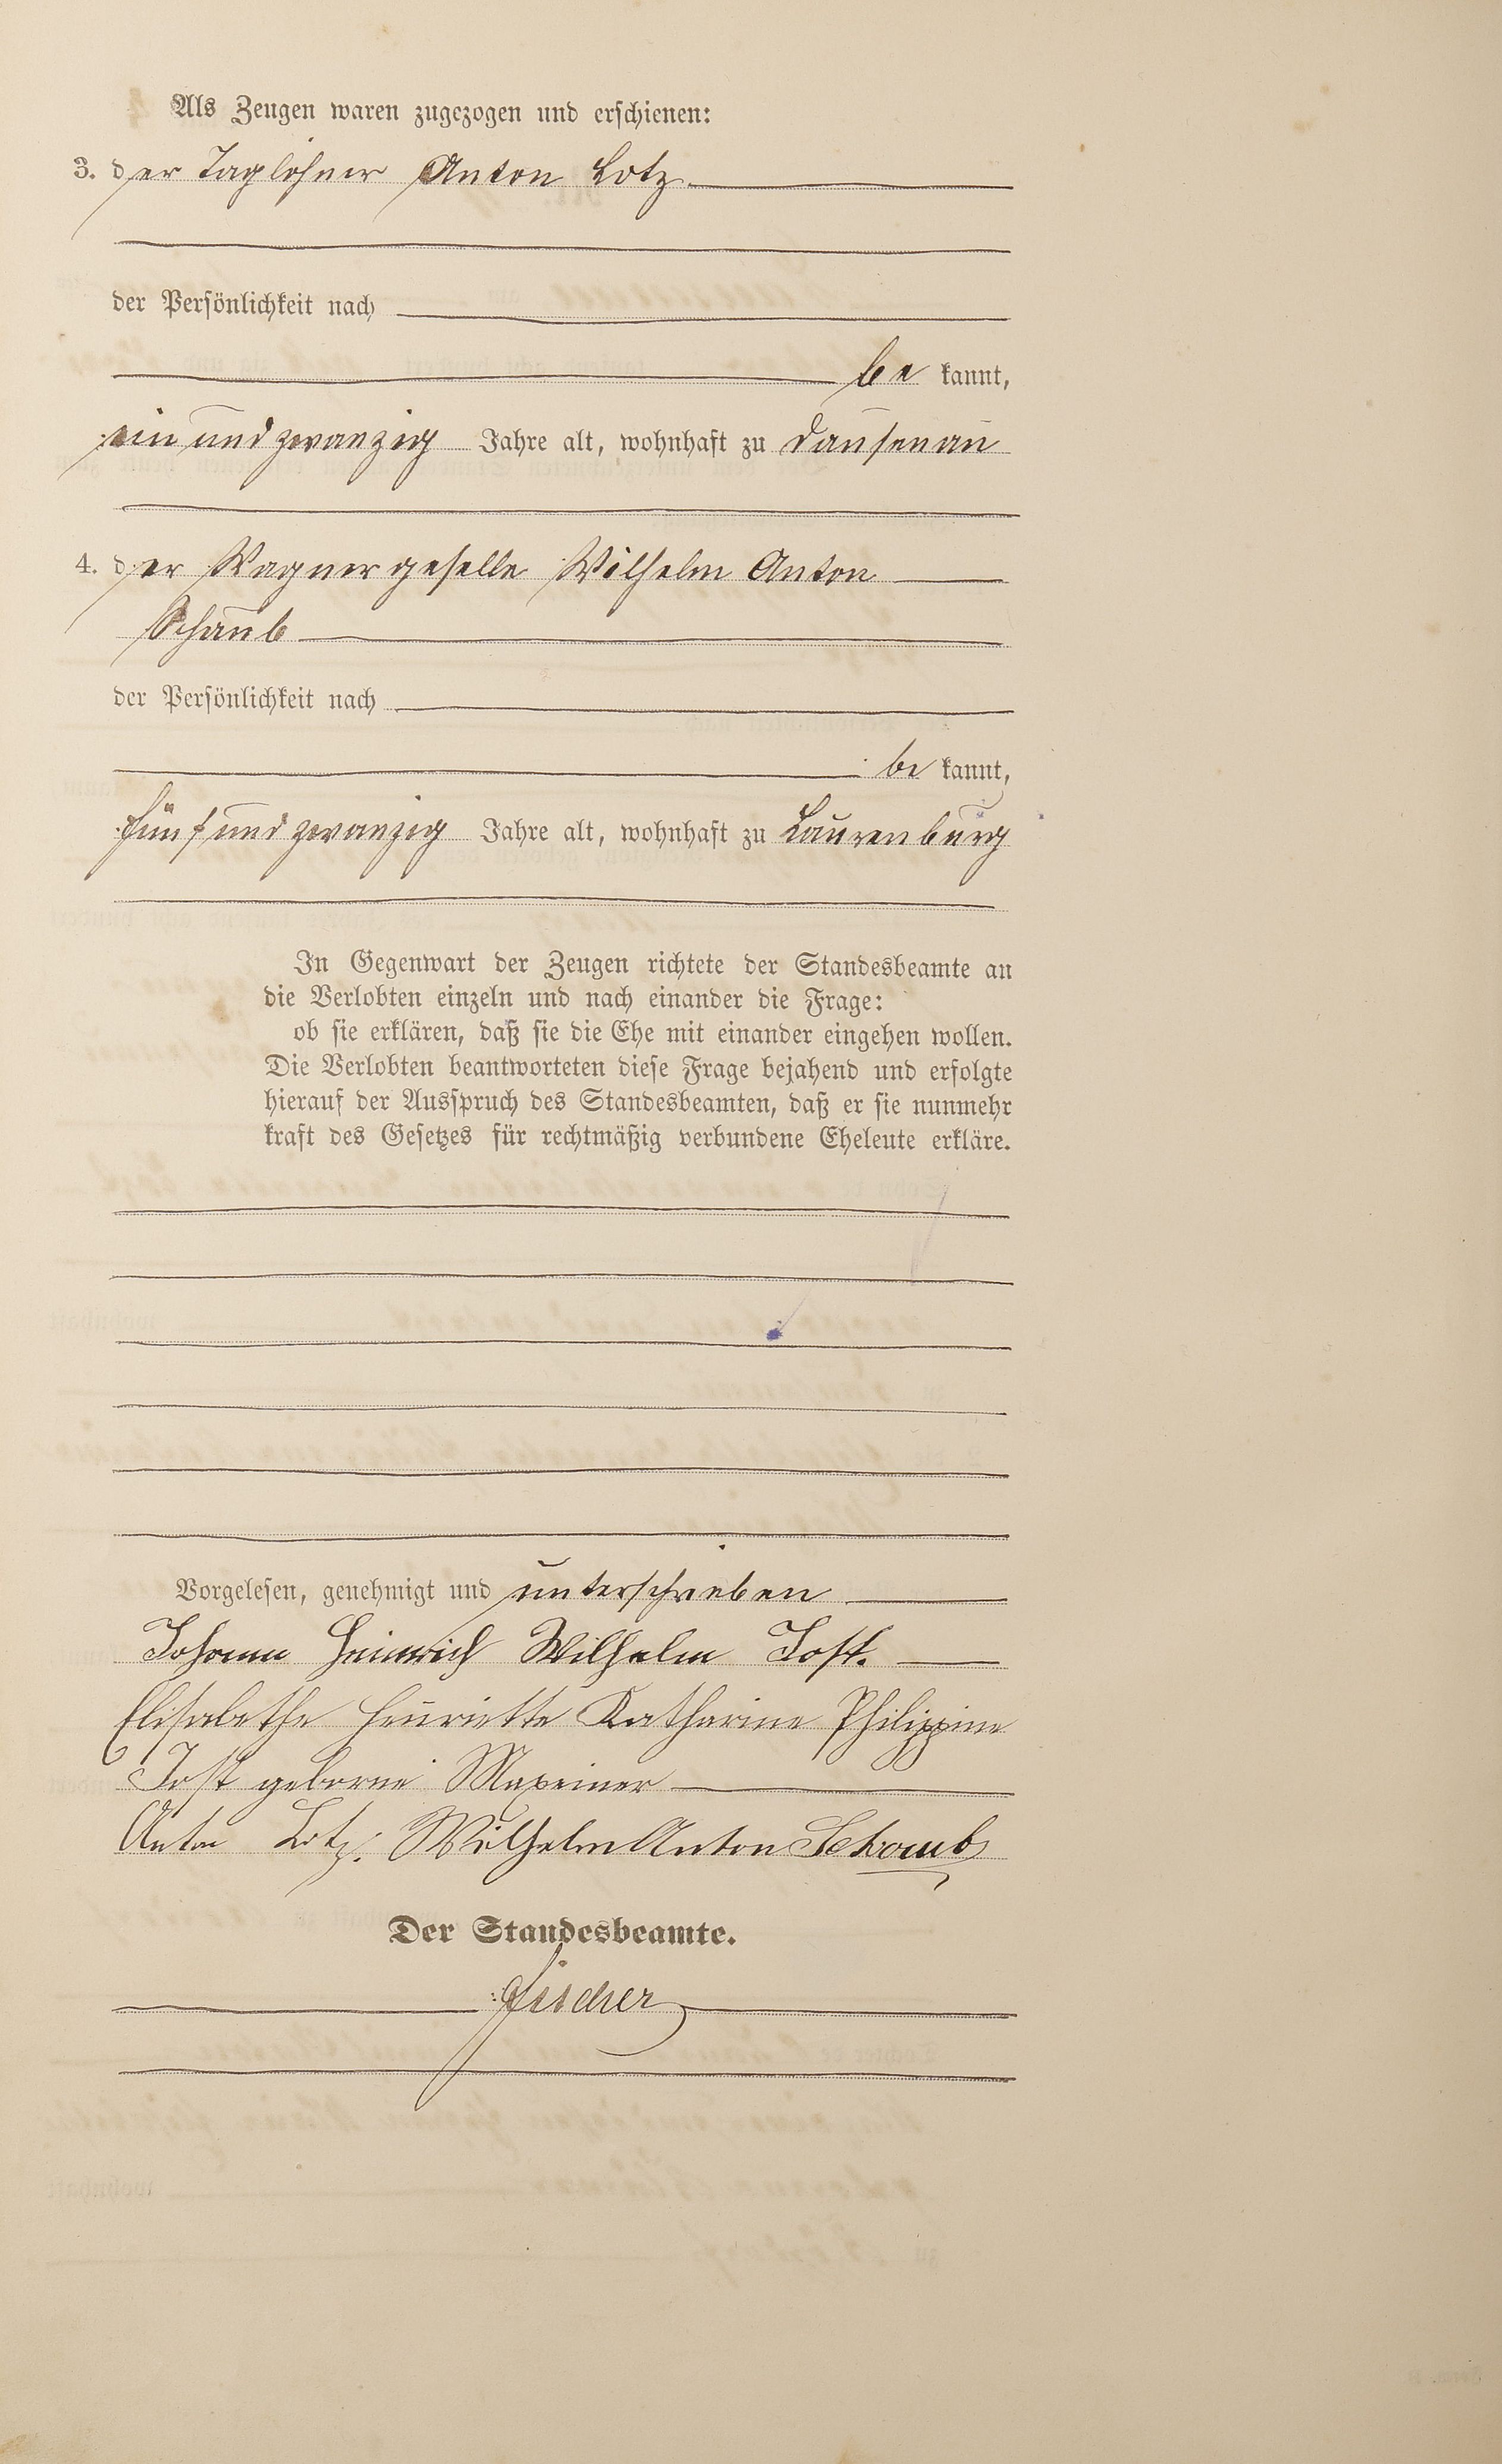 Als Zeugen waren zugezogen und erschienen:
3. der Taglöhner Anton Lotz
der Persönlichkeit nach
be kannt,
ein und zwanzig Jahre alt, wohnhaft zu Dausenau
4. der Wagnergeselle Wilhelm Anton
Schaub
der Persönlichkeit nach
be kannt,
fünf und zwanzig Jahre alt, wohnhaft zu Laurenburg
In Gegenwart der Zeugen richtete der Standesbeamte an
die Verlobten einzeln und nach einander die Frage:
ob sie erklären, daß sie die Ehe mit einander eingehen wollen.
Die Verlobten beantworteten diese Frage bejahend und erfolgte
hierauf der Ausspruch des Standesbeamten, daß er sie nunmehr
kraft des Gesetzes für rechtmäßig verbundene Eheleute erkläre.
Vorgelesen, genehmigt und unterschrieben
Johann Heinrich Wilhelm Jost.
Elisabethe Henriette Katharine Philippine
Jost geborne Maxeiner
Anton Lotz. Wilhelm Anton Schaub
Der Standesbeamte.
Fischer